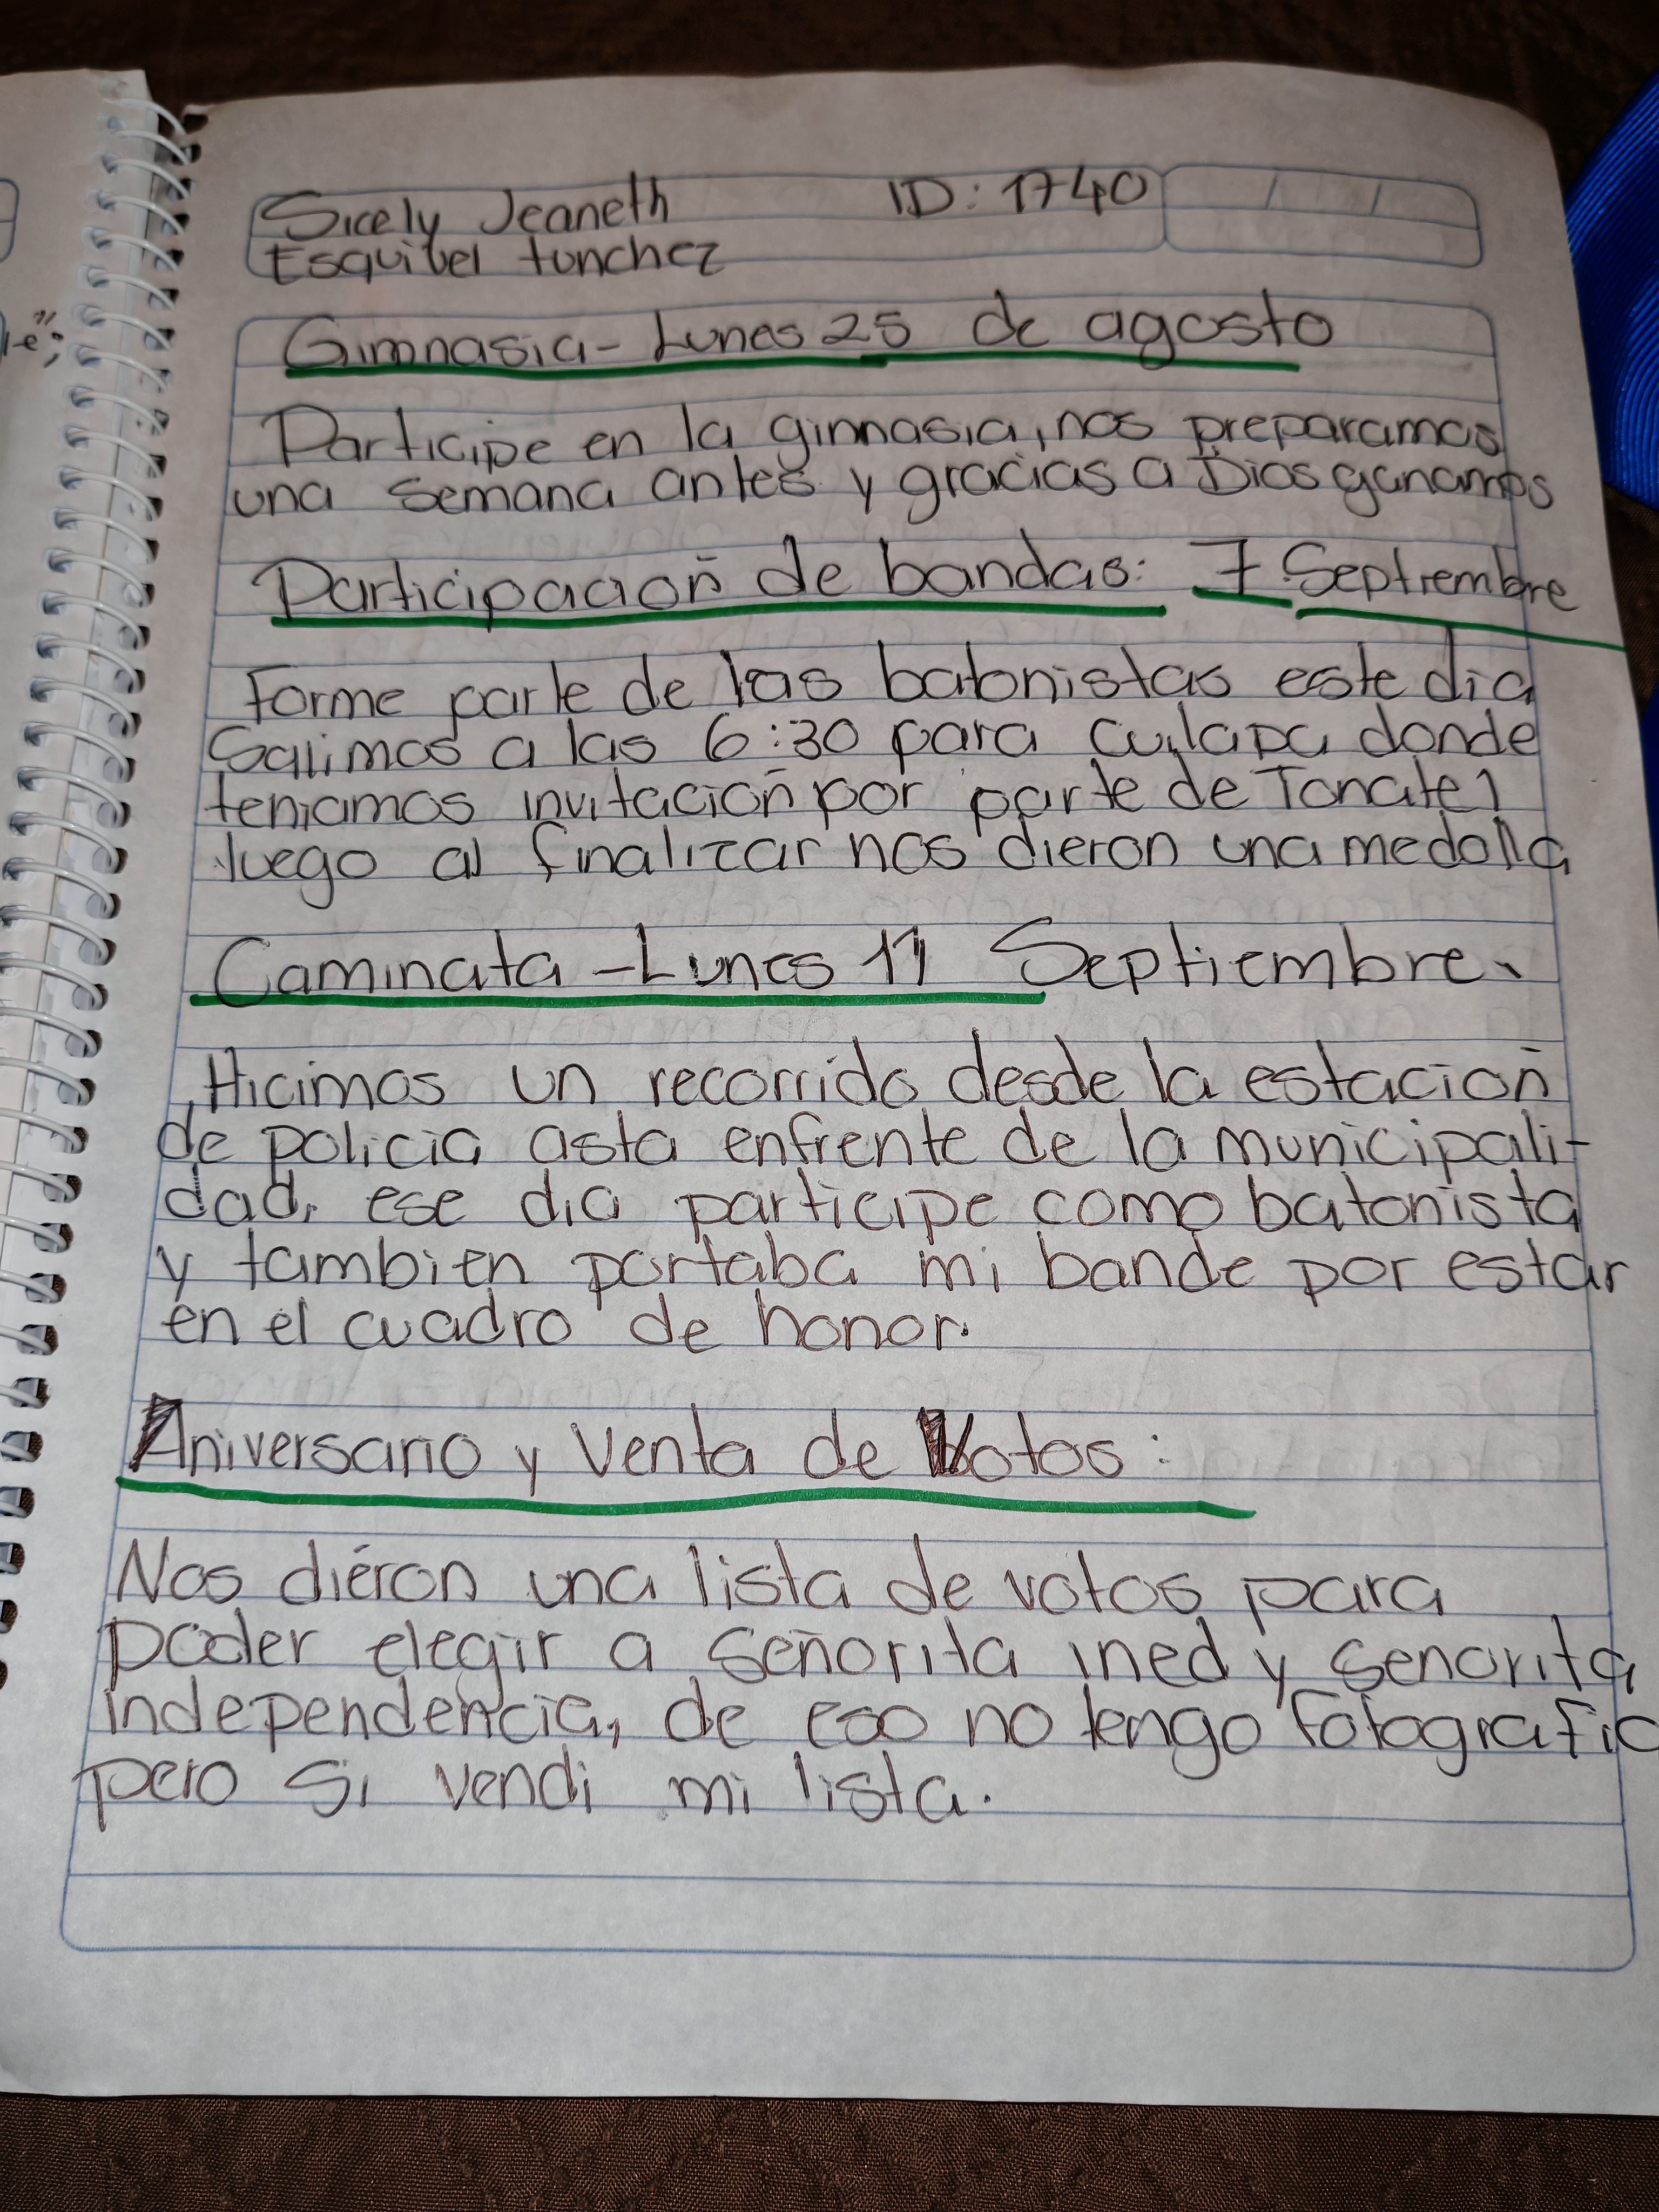 Sicely Jeaneth ID: 1740
Esquivel tunchez
Gimnasia - Lunes 25 de agosto
Participe en la gimnasia, nos preparamos
una semana antes y gracias a Dios ganamos
Participación de bandas: 7 Septiembre
Forme parte de las batonistas este dia
Salimos a las 6:30 para Cuilapa donde
teniamos invitación por parte de Tonatel
luego al finalizar nos dieron una medalla
Caminata - Lunes 11 Septiembre.
Hicimos un recorrido desde la estación
de policia asta enfrente de la municipali-
dad, ese dia participe como batonista
y tambien portaba mi bande por estar
en el cuadro de honor.
Aniversario y Venta de Votos:
Nos dieron una lista de votos para
poder elegir a señorita ined y senorita
independencia, de eso no tengo fotografia
pero si vendi mi lista.